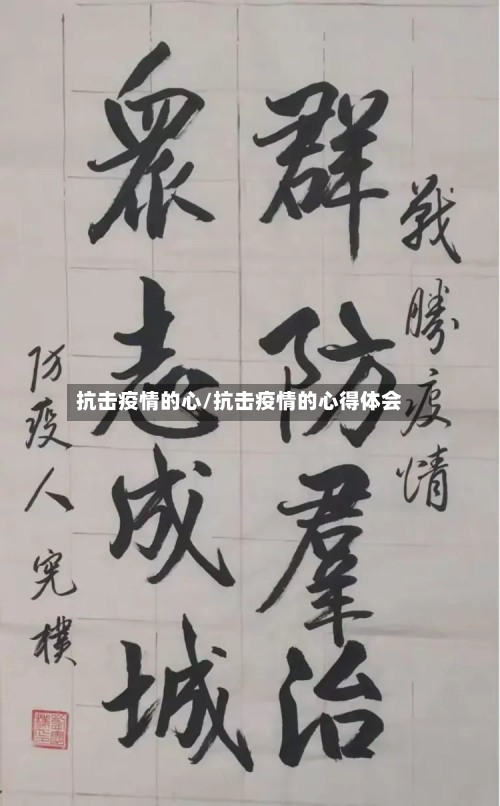 戰勝疫情
群防羣治
眾志成城
防疫人 完樸
抗击疫情的心/抗击疫情的心得体会